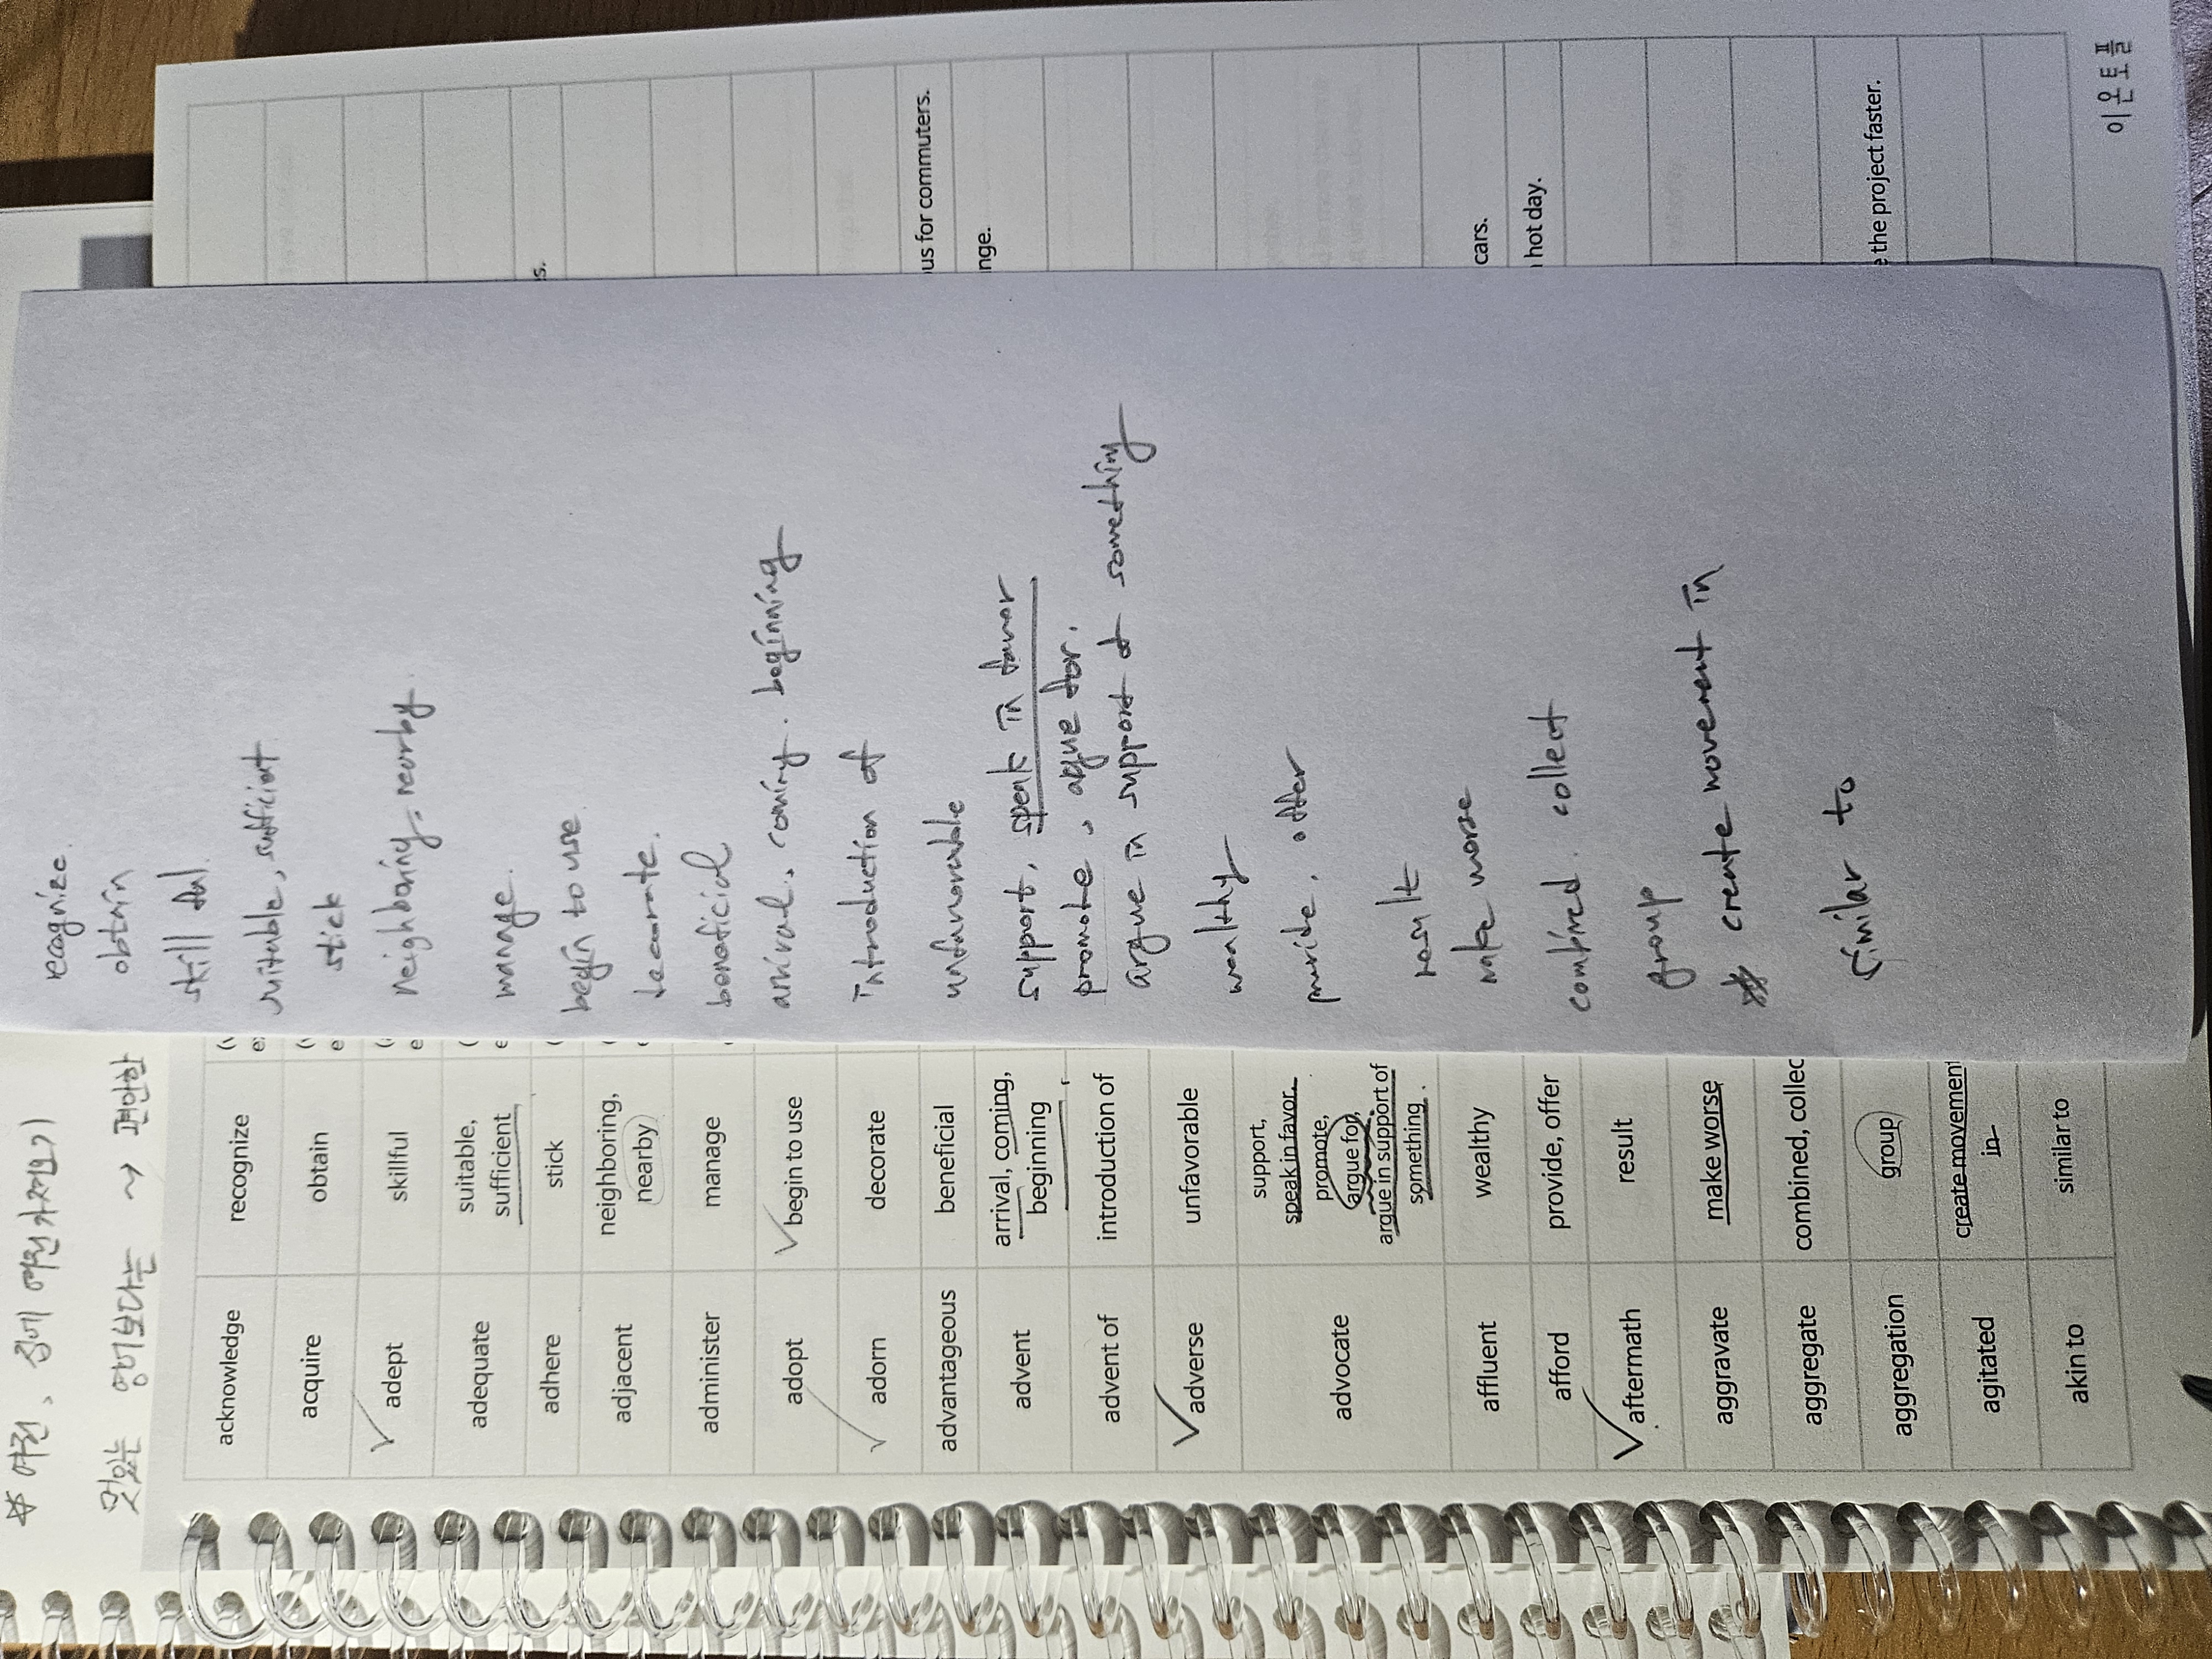 * 여전, 집에 여전가자편?)
맛있는 영어보다는 → 편안한
acknowledge recognize
acquire obtain
adept skillful
adequate suitable,
sufficient
adhere stick
adjacent neighboring,
nearby
administer manage
adopt begin to use
adorn decorate
advantageous beneficial
advent arrival, coming,
beginning
advent of introduction of
adverse unfavorable
advocate support,
speak in favor,
promote,
argue for,
argue in support of
something
affluent wealthy
afford provide, offer
aftermath result
aggravate make worse
aggregate combined, collec
aggregation group
agitated create movement
in
akin to similar to
recognize.
obtain
skill ful.
suitable, sufficient
stick
neighboring, nearby.
manage.
begin to use
decorate.
beneficial
arrival, coming. beginning
Introduction of
unfavorable
support, speak in favor
promote, argue for.
argue in support of something
wealthy
provide, offer
result
make worse
combined. collect
group
* create movement in
similar to
s.
us for commuters.
nge.
cars.
hot day.
e the project faster.
이윤토플